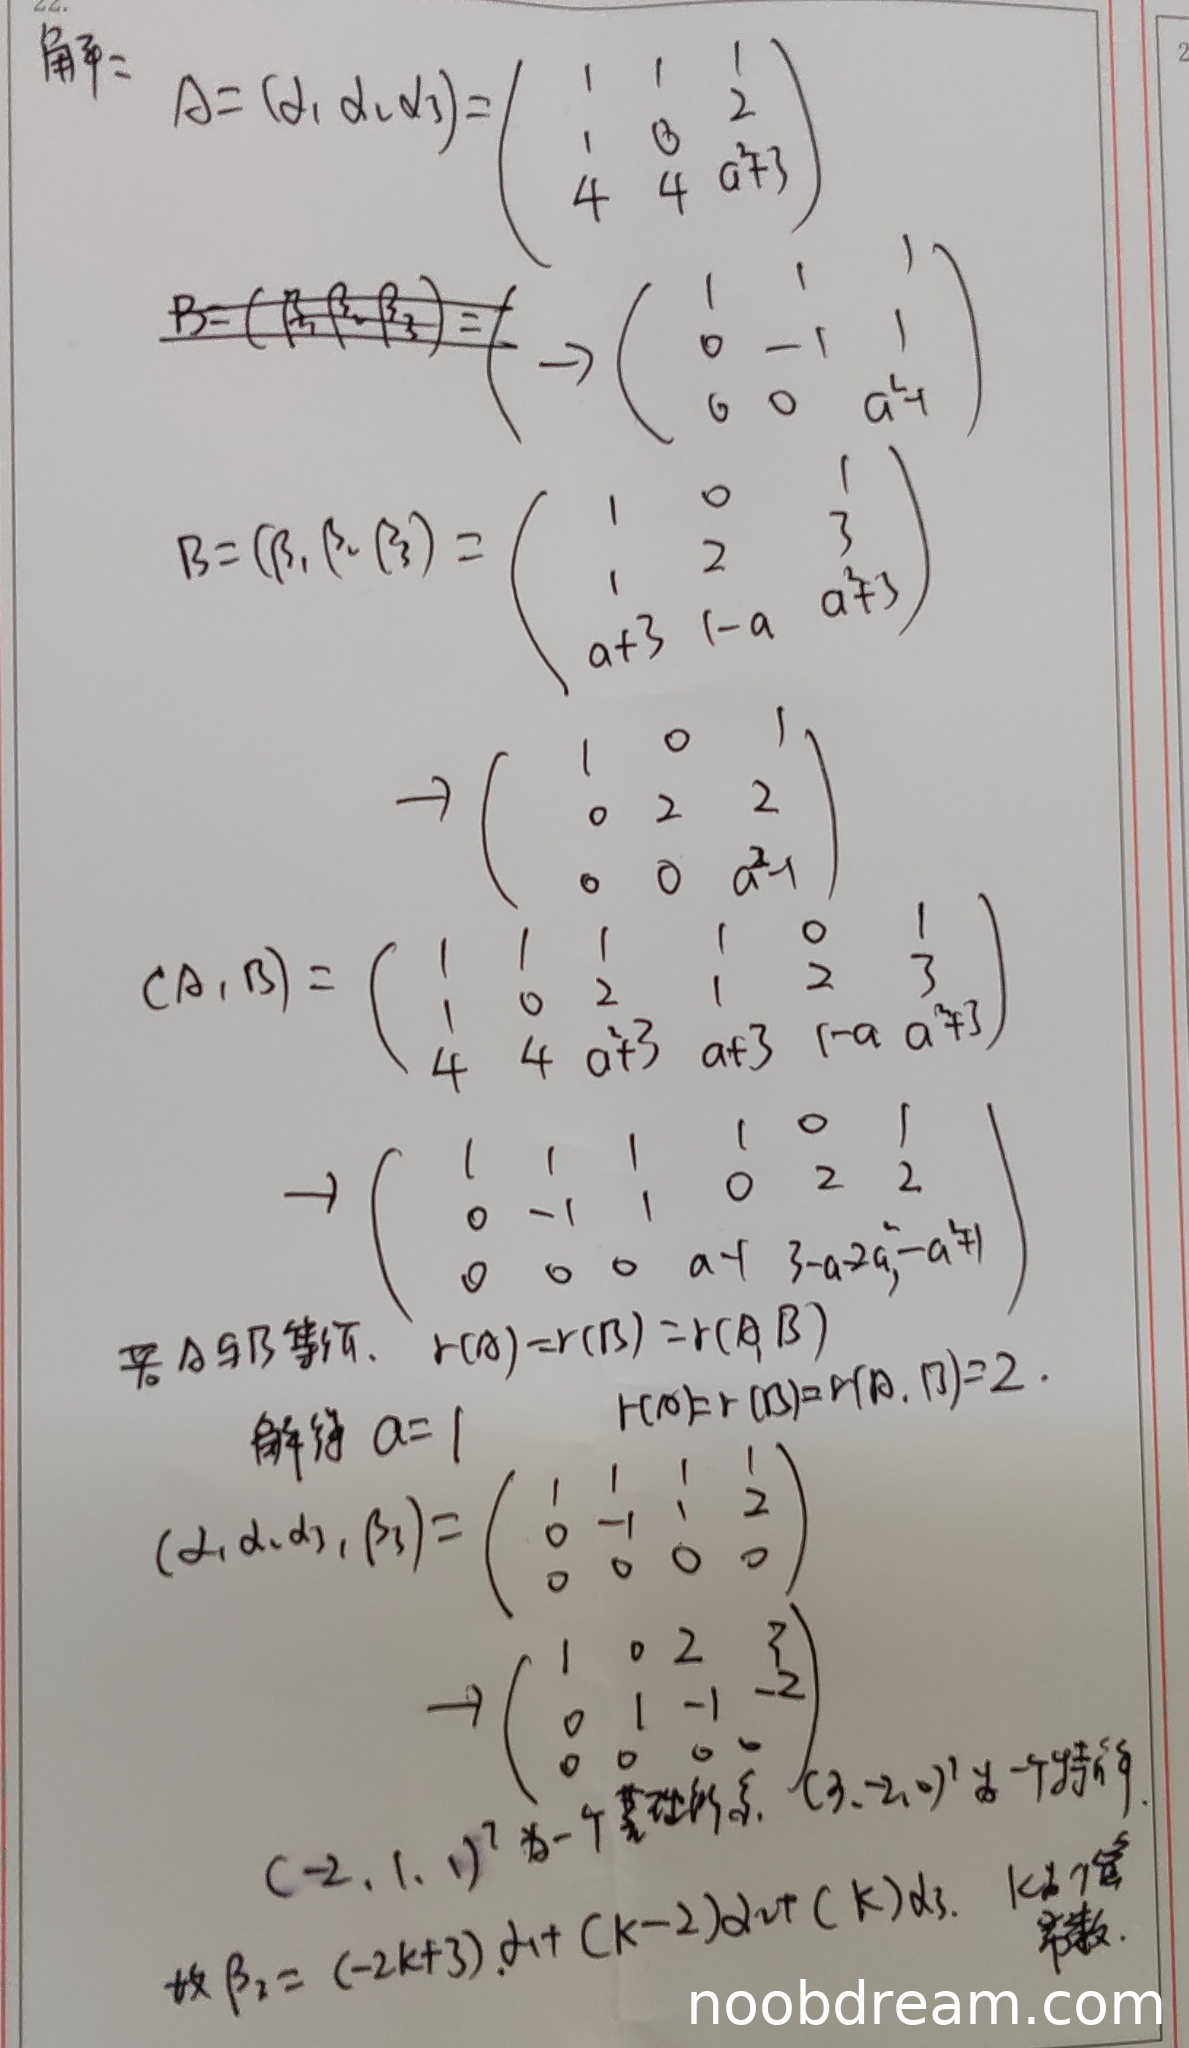 22.
解:
A=(α₁ α₂ α₃)=
1 1 1
1 0 2
4 4 a²+3
B=(β₁ β₂ β₃)=(
→
1 1 1
0 -1 1
0 0 a²-1
B=(β₁ β₂ β₃)=
1 0 1
1 2 3
a+3 1-a a²+3
→
1 0 1
0 2 2
0 0 a²-1
(A,B)=
1 1 1 1 0 1
1 0 2 1 2 3
4 4 a²+3 a+3 1-a a²+3
→
1 1 1 1 0 1
0 -1 1 0 2 2
0 0 0 a-1 3-a-2a² -a²+1
若A与B等价. r(A)=r(B)=r(A,B)
解得 a=1 r(A)=r(B)=r(A,B)=2.
(α₁ α₂ α₃, β₃)=
1 1 1 1
0 -1 1 2
0 0 0 0
→
1 0 2 3
0 1 -1 -2
0 0 0 0
(-2, 1, 1)ᵀ为一个基础解系. (3,-2,0)ᵀ为一个特解.
故β₃=(-2k+3)α₁+(k-2)α₂+(k)α₃. k为任意
常数.
noobdream.com
2